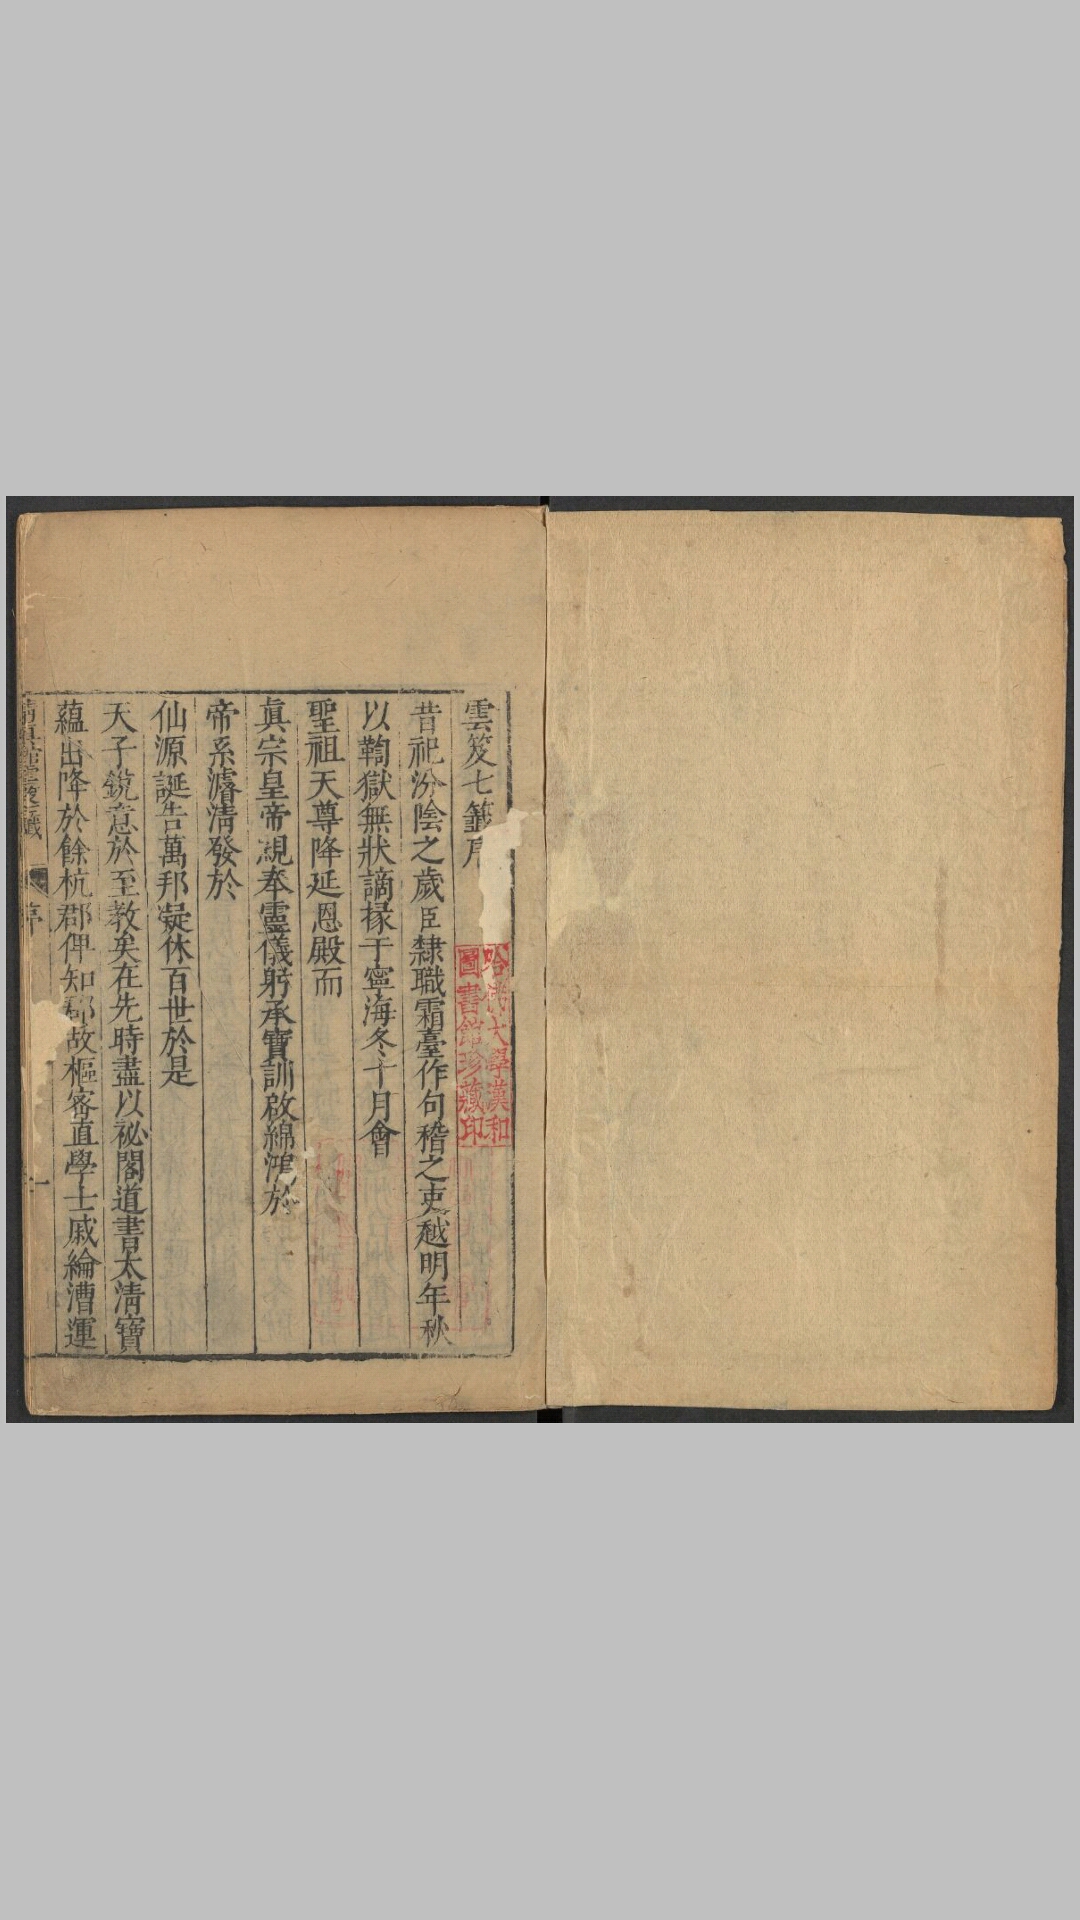 雲笈七籤序
昔祀汾陰之歲臣隸職霜臺作句稽之吏越明年秋
以鞫獄無狀謫掾于寧海冬十月會
聖祖天尊降延恩殿而
眞宗皇帝親奉靈儀躬承寶訓啟綿鴻於
帝系濬清發於
仙源誕告萬邦凝休百世於是
天子銳意於至教矣在先時盡以祕閣道書太清寶
蘊出降於餘杭郡俾知郡故樞密直學士戚綸漕運
清眞館雲笈七籤
序
一
哈佛大學漢和
圖書館珍藏印